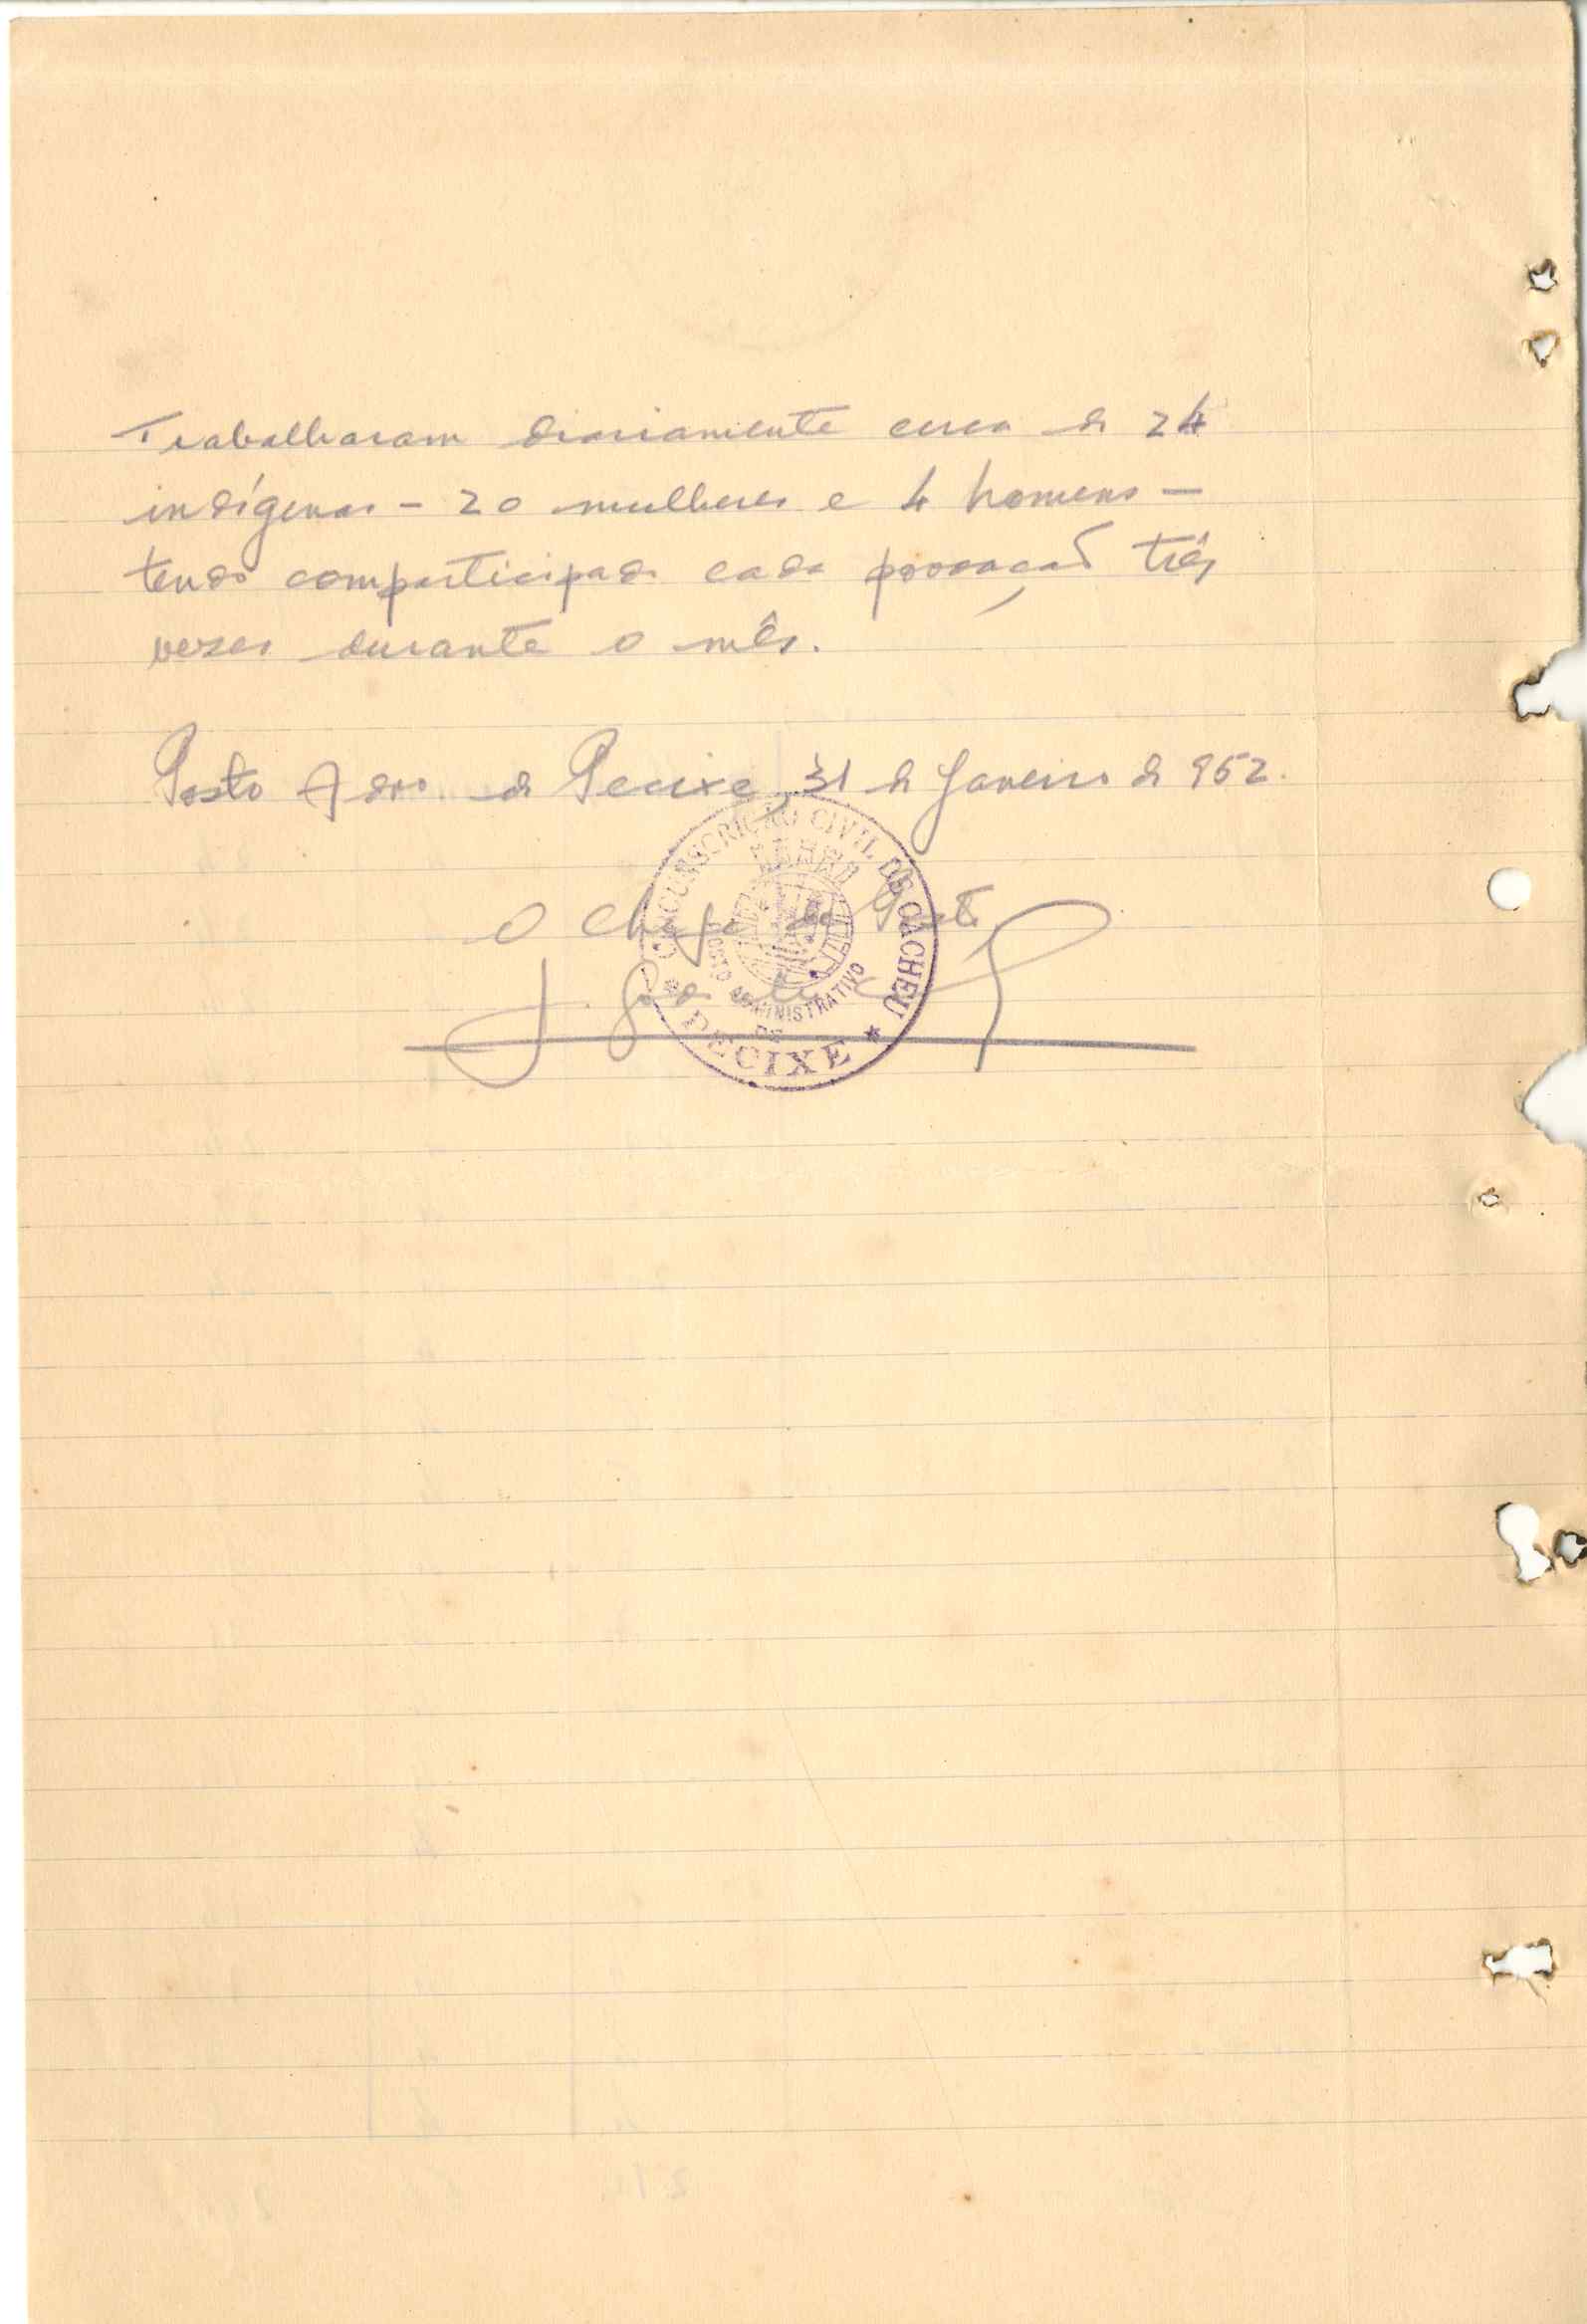 Trabalharam diariamente cerca de 24
indígenas - 20 mulheres e 4 homens -
tendo comparticipado cada povoação três
vezes durante o mês.
Posto Admo. de Pecixe, 31 de Janeiro de 952.
O Chefe de Posto,
CIRCUNSCRIÇÃO CIVIL DE CACHEU
POSTO ADMINISTRATIVO
DE
* PECIXE *